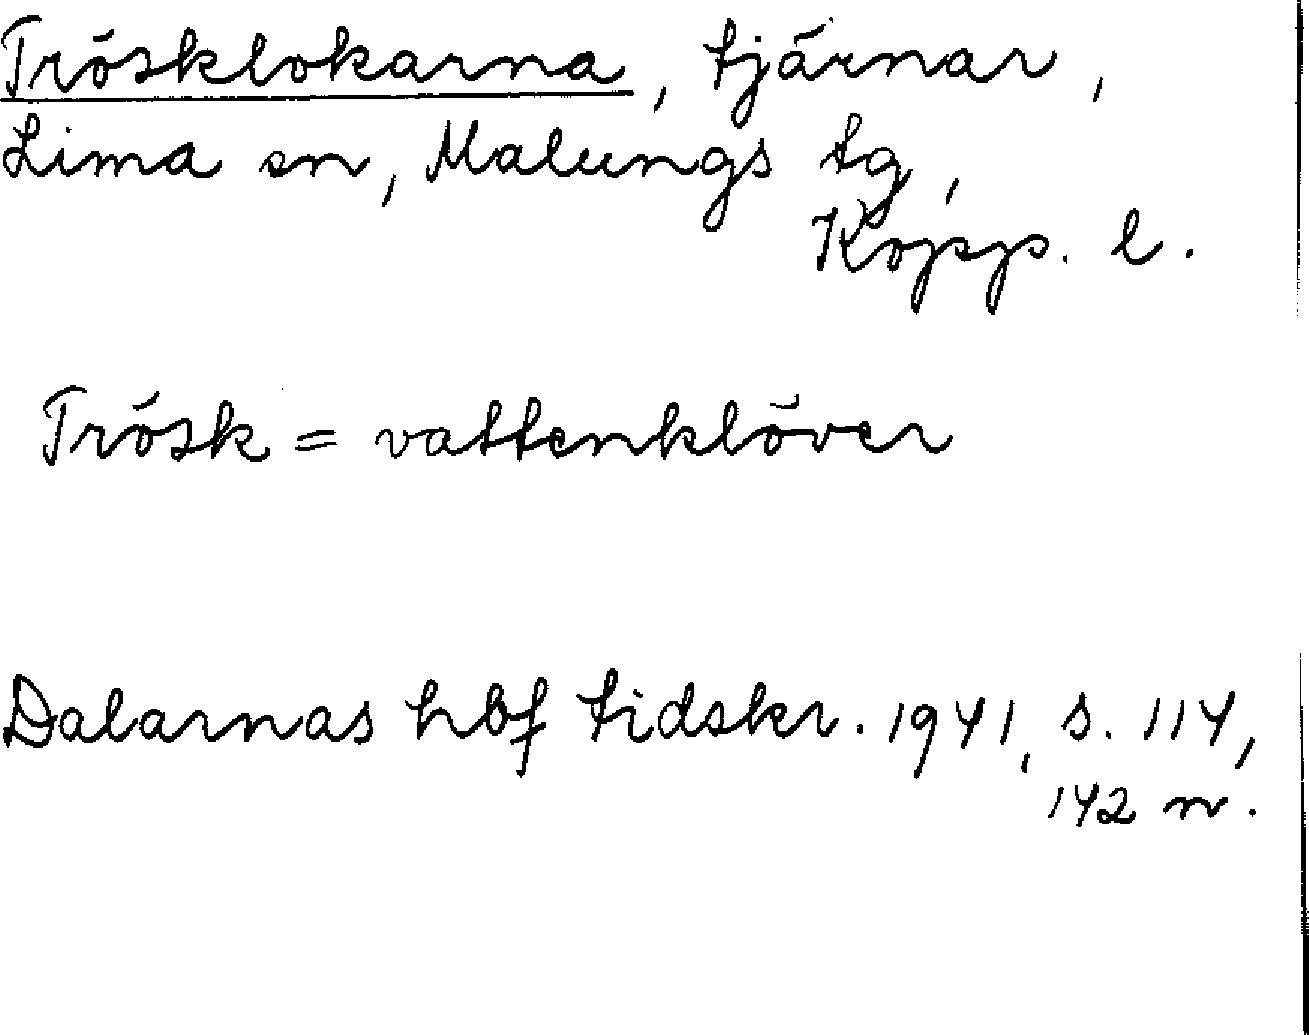 Trösklokarna, tjärnar,
Lima sn, Malungs tg,
Kopp. l.
Trösk = vattenklöver
Dalarnas hbf tidskr. 1941, s. 114,
142 n.